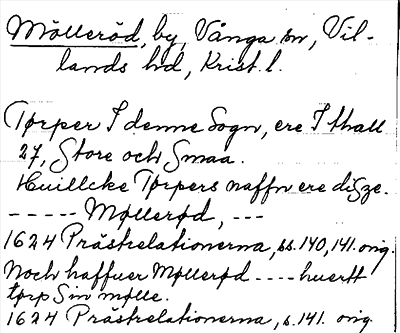 Mölleröd, by, Vånga sn, Vil-
lands hd, Krist. l.
Tørper I denne Sogn, ere I thall
27, Store och Smaa.
Huillcke Tørpers naffn ere disze.
----- Møllerød, ---
1624 Prästrelationerna, ss. 140, 141. orig.
Noch haffuer Møllerød ---- huertt
tørp Sin mølle.
1624 Prästrelationerna, s. 141. orig.